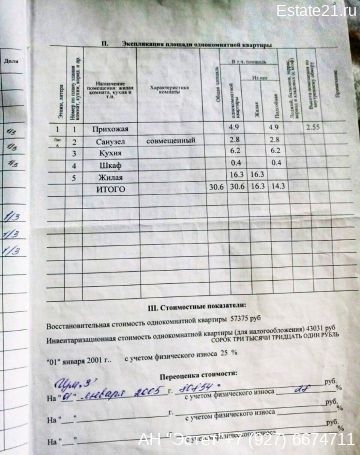 Estate21.ru
II. Экспликация площади однокомнатной квартиры
Дата
Этажи, литера
Номер по плану здания
Назначение помещения: жилая комната, кухня и т.п.
Характеристика комнаты
Общая площадь
В т.ч. площадь
однокомнатной квартиры
Из нее
Жилая
Подсобная
1 1 Прихожая 4.9 4.9 2.55
2 Санузел совмещенный 2.8 2.8
3 Кухня 6.2 6.2
4 Шкаф 0.4 0.4
5 Жилая 16.3 16.3
ИТОГО 30.6 30.6 16.3 14.3
III. Стоимостные показатели:
Восстановительная стоимость однокомнатной квартиры 57375 руб
Инвентаризационная стоимость однокомнатной квартиры (для налогообложения) 43031 руб
СОРОК ТРИ ТЫСЯЧИ ТРИДЦАТЬ ОДИН РУБЛЬ
"01" января 2001 г.. с учетом физического износа 25 %
Переоценка стоимости:
На "01" января 2005 г. с учетом физического износа 28 %
На "__" г. с учетом физического износа %
На "__" г. с учетом физического износа
На "__" с учетом физического износа
(927) 6674711